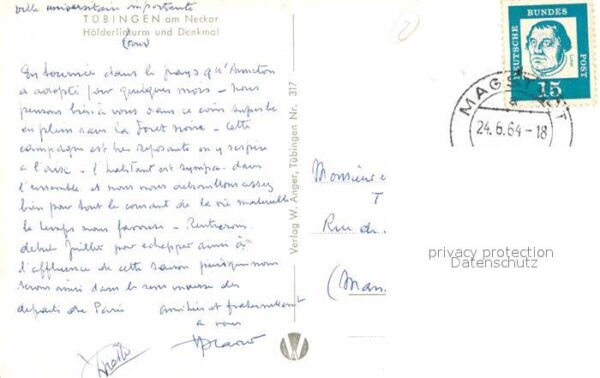 ville universitaire importante
TÜBINGEN am Neckar
Hölderlinturm und Denkmal
(tour)
En tournée dans le pays qu'
a adopté pour quelques mois - nous
pensons bien à vous dans ce coin superbe
en plein dans la Forêt Noire - Cette
campagne est très reposante on y respire
à l'aise - l'habitant est sympa. dans
l'ensemble et nous nous débrouillons assez
bien pour tout le courant de la vie matérielle
le temps nous favorise - Rentrerons
début Juillet pour échapper ainsi à
l'affluence de cette saison puisque nous
serons ainsi dans le sens inverse des
départs de Paris amitiés et fraternellement
à vous
Verlag W. Anger, Tübingen Nr. 317
W
DEUTSCHE BUNDESPOST
Luther
15
MAG
24.6.64-18
Monsieur
T
Rue de
(Man
privacy protection
Datenschutz
2